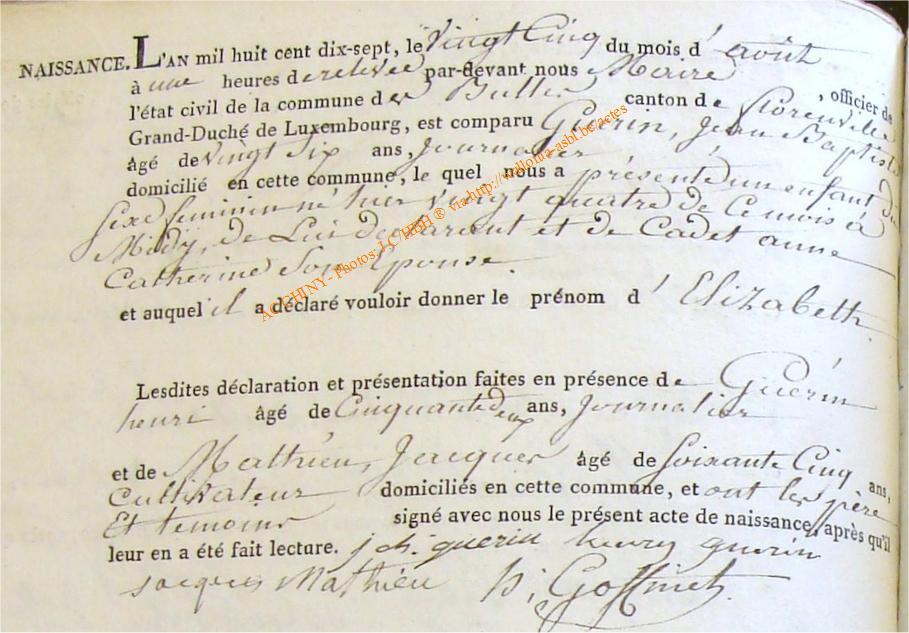 NAISSANCE. L'AN mil huit cent dix-sept, le vingt Cinq du mois d' août
à une heures de relevée par-devant nous Maire , officier de
l'état civil de la commune de canton de florenville
Grand-Duché de Luxembourg, est comparu Guérin, Jean Baptiste
âgé de vingt Six ans, Journalier
domicilié en cette commune, le quel nous a présenté un enfant du
Sexe feminin né hier vingt quatre de Ce mois à
Midy, de Lui declarant et de Cadet anne
Catherine Son Epouse.
et auquel il a déclaré vouloir donner le prénom d' Elizabeth.
Lesdites déclaration et présentation faites en présence de Guérin
henri âgé de Cinquante deux ans, Journalier
et de Mathieu, Jacques âgé de Soixante Cinq ans,
Cultivateur domiciliés en cette commune, et ont les père
Et temoins signé avec nous le présent acte de naissance, après qu'il
leur en a été fait lecture. guerin henry guerin
Jacques Mathieu Goffinet
ACGHINY- Photos J.C HBH ® via http://wallonia-asbl.be/actes